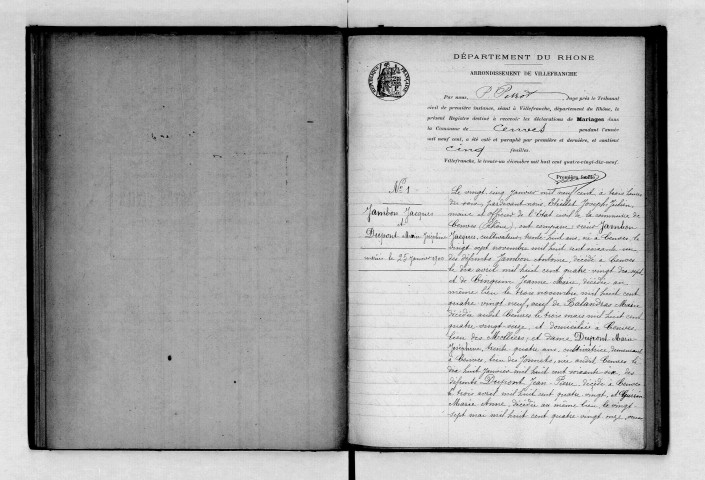 DÉPARTEMENT DU RHONE
ARRONDISSEMENT DE VILLEFRANCHE
RÉPUBLIQUE FRANÇAISE
Par nous, P. Perrot, Juge près le Tribunal
civil de première instance, séant à Villefranche, département du Rhône, le
présent Registre destiné à recevoir les déclarations de Mariages dans
la Commune de Cenves pendant l'année
mil neuf cent, a été coté et paraphé par première et dernière, et contient
cinq feuilles.
Villefranche, le trente-un décembre mil huit cent quatre-vingt-dix-neuf.
Première feuille
N° 1
Jambon Jacques
et
Dupont Marie Joséphine
mariés le 25 Janvier 1900
Le vingt cinq Janvier mil neuf cent à trois heures
du soir, pardevant nous Joseph Julien
maire et officier de l'Etat civil de la commune de
Cenves (Rhône), ont comparu sieur Jambon
Jacques, cultivateur, trente huit ans, né à Cenves le
vingt sept novembre mil huit cent soixante un
des défunts Jambon Antoine, décédé à Cenves
le dix avril mil huit cent quatre vingt dix sept
et de Jeanne Marie, décédée au
même lieu le trois novembre mil huit cent
quatre vingt neuf, veuf de Balandras Marie
décédée audit Cenves le trois mars mil huit cent
quatre vingt onze, et domicilié à Cenves,
lieu des Molières; et dame Dupont Marie
Joséphine, trente quatre ans, cultivatrice demeurant
à Cenves, lieu des, née audit Cenves le
dix huit Janvier mil huit cent soixante six des
défunts Dupont Jean-Pierre décédé à Cenves
le trois avril mil huit cent quatre vingt, et
Marie Anne décédée au même lieu le vingt
sept mai mil huit cent quatre vingt onze, veuve